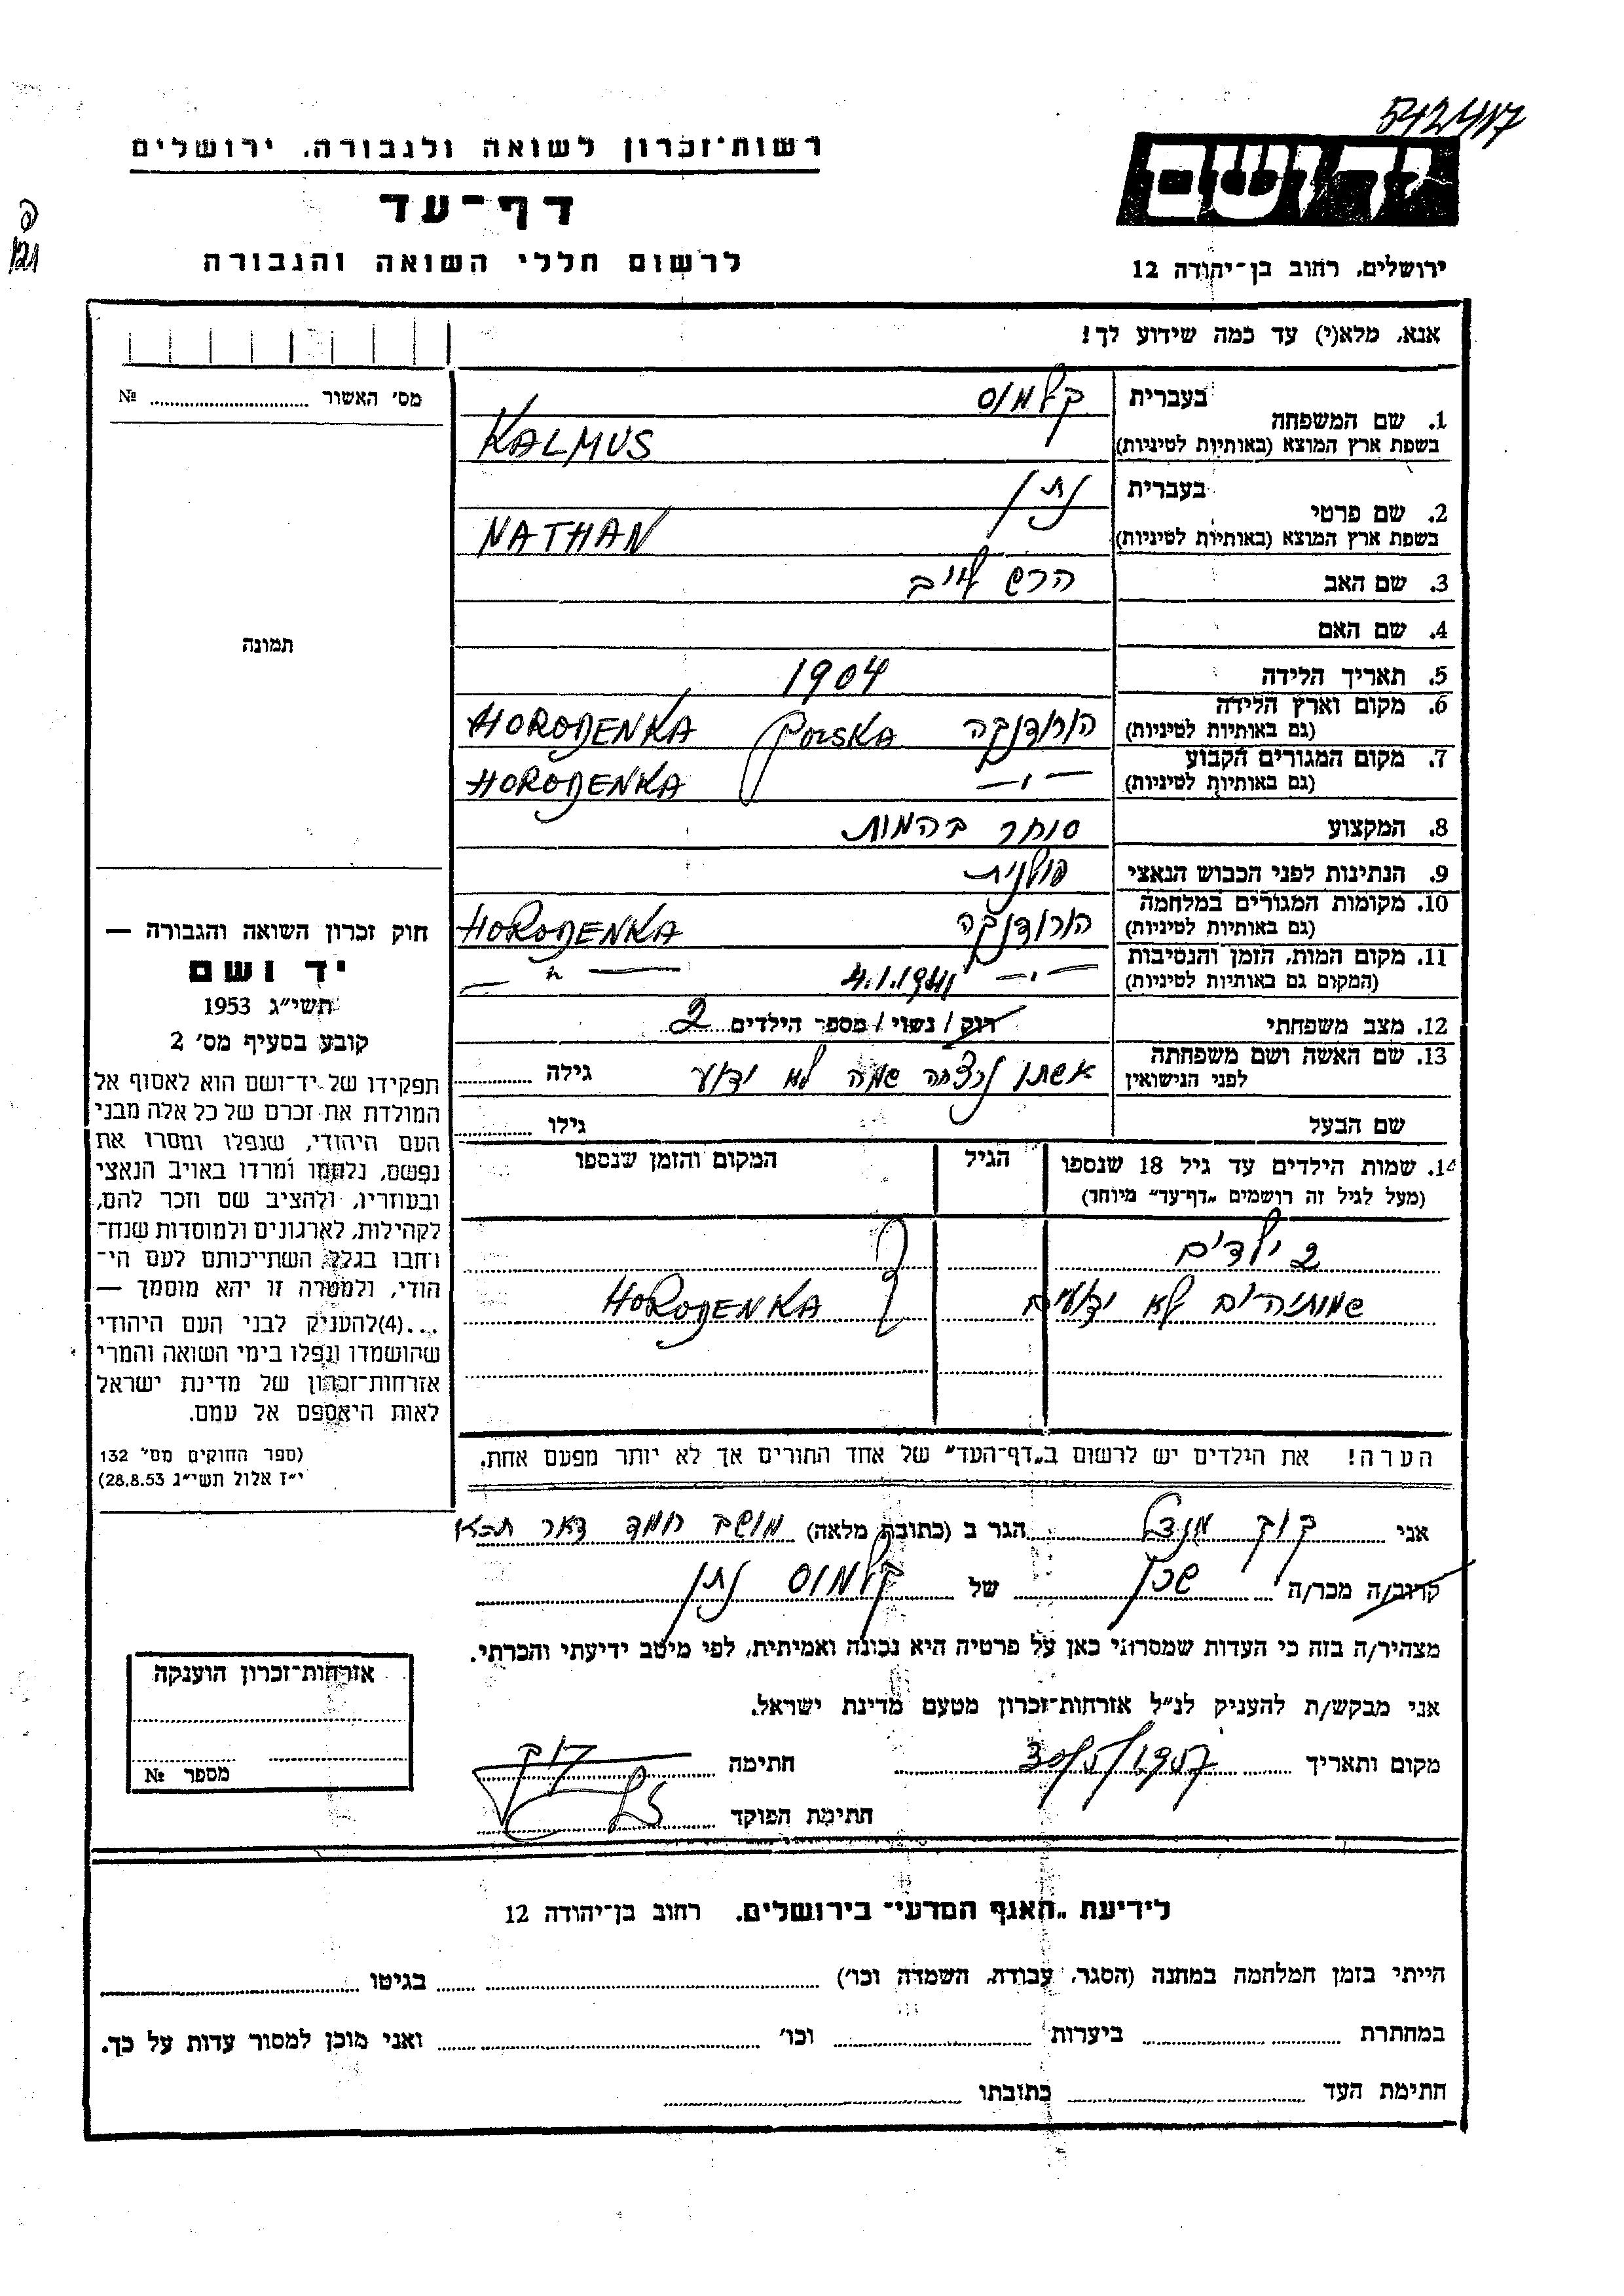 542417
רשות־זכרון לשואה ולגבורה. ירושלים
דף־עד
לרשום חללי השואה והגבורה
יד ושם
ירושלים, רחוב בן־יהודה 12
אנא, מלא(י) עד כמה שידוע לך!
מס׳ האשור № 
תמונה
1. שם המשפחה
בעברית קלמוס
בשפת ארץ המוצא (באותיות לטיניות) KALMUS
2. שם פרטי
בעברית נתן
בשפת ארץ המוצא (באותיות לטיניות) NATHAN
3. שם האב הרש לייב
4. שם האם
5. תאריך הלידה 1904
6. מקום וארץ הלידה
(גם באותיות לטיניות) הורודנקה POLSKA HORODENKA
7. מקום המגורים הקבוע
(גם באותיות לטיניות) — " — HORODENKA
8. המקצוע סוחר בהמות
9. הנתינות לפני הכבוש הנאצי פולנית
10. מקומות המגורים במלחמה
(גם באותיות לטיניות) הורודנקה HORODENKA
11. מקום המות, הזמן והנסיבות
(המקום גם באותיות לטיניות) — " — 4.1.1941 — " —
12. מצב משפחתי רוק / נשוי / מספר הילדים 2
13. שם האשה ושם משפחתה
לפני הנישואין אשתו נרצחה שמה לא ידוע גילה
שם הבעל גילו
14. שמות הילדים עד גיל 18 שנספו הגיל המקום והזמן שנספו
(מעל לגיל זה רושמים „דף־עד״ מיוחד)
2 ילדים
שמותיהם לא ידועים HORODENKA
הערה! את הילדים יש לרשום ב„דף־העד״ של אחד ההורים אך לא יותר מפעם אחת.
חוק זכרון השואה והגבורה —
יד ושם
תשי״ג 1953
קובע בסעיף מס׳ 2
תפקידו של יד־ושם הוא לאסוף אל
המולדת את זכרם של כל אלה מבני
העם היהודי, שנפלו ומסרו את
נפשם, נלחמו ומרדו באויב הנאצי
ובעוזריו, ולהציב שם וזכר להם,
לקהילות, לארגונים ולמוסדות שנח־
רחבו בגלל השתייכותם לעם הי־
הודי, ולמטרה זו יהא מוסמך —
...(4)להעניק לבני העם היהודי
שהושמדו ונפלו בימי השואה והמרי
אזרחות־זכרון של מדינת ישראל
לאות היאספם אל עמם.
(ספר החוקים מס׳ 132
י״ז אלול תשי״ג 28.8.53)
אני קוך מנדל הגר ב (כתובת מלאה) מושב חמד דאר
קרוב/ה מכר/ה שכן של קלמוס נתן
מצהיר/ה בזה כי העדות שמסרתי כאן על פרטיה היא נכונה ואמיתית, לפי מיטב ידיעתי והכרתי.
אני מבקש/ת להעניק לנ״ל אזרחות־זכרון מטעם מדינת ישראל.
מקום ותאריך 30/5/1957 חתימה קוך
חתימת הפוקד
אזרחות־זכרון הוענקה
מספר №
לידיעת „האגף המדעי״ בירושלים. רחוב בן־יהודה 12
הייתי בזמן המלחמה במחנה (הסגר, עבודה, השמדה וכו׳) בגיטו
במחתרת ביערות וכו׳ ואני מוכן למסור עדות על כך.
חתימת העד כתובתו